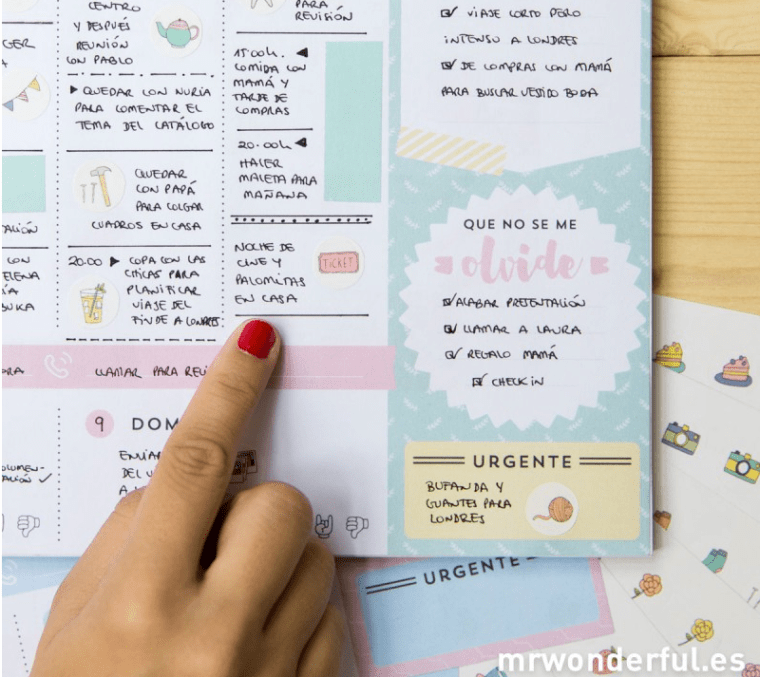 CENTRO
Y DESPUÉS
REUNIÓN
CON PABLO
▶ QUEDAR CON NURIA
PARA COMENTAR EL
TEMA DEL CATÁLOGO
QUEDAR
CON PAPÁ
PARA COLGAR
CUADROS EN CASA
20:00 ▶ COPA CON LAS
CHICAS PARA
PLANIFICAR
VIAJE DEL
FINDE A LONDRES
PARA
REVISIÓN
15:00h. ◀
COMIDA CON
MAMÁ Y
TARDE DE
COMPRAS
20:00h ◀
HACER
MALETA PARA
MAÑANA
NOCHE DE
CINE Y
PALOMITAS
EN CASA
TICKET
LLAMAR PARA
9 DOM
☑ VIAJE CORTO PERO
INTENSO A LONDRES
☑ DE COMPRAS CON MAMÁ
PARA BUSCAR VESTIDO BODA
QUE NO SE ME
olvide
☑ ACABAR PRESENTACIÓN
☑ LLAMAR A LAURA
☑ REGALO MAMÁ
☑ CHECK IN
URGENTE
BUFANDA Y
GUANTES PARA
LONDRES
URGENTE
mrwonderful.es